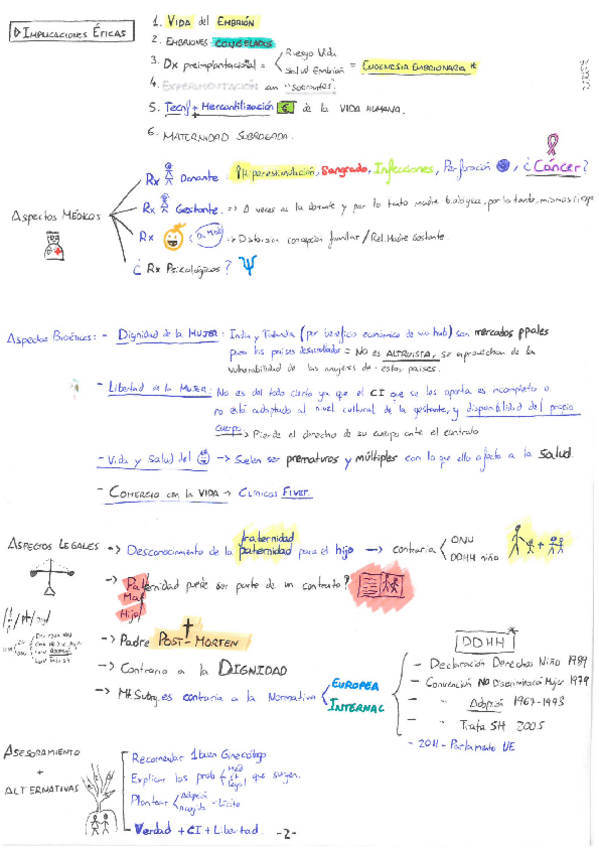 ▷ IMPLICACIONES ÉTICAS
1. VIDA del EMBRIÓN
2. EMBRIONES CONGELADOS
3. Dx preimplantacional = Riesgo Vida
Salud Embrión = EUGENESIA EMBRIONARIA *
4. EXPERIMENTACIÓN con "sobrantes".
5. Tecn/ + Mercantilización € de la VIDA HUMANA.
6. MATERNIDAD SUBROGADA.
Aspectos Médicos
Rx Donante: Hiperestimulación, Sangrado, Infecciones, Perforación, ¿Cáncer?
Rx Gestante. => A veces es la donante y por lo tanto madre biológica, por lo tanto, mismos riesgos
Rx -> Distorsión concepción familiar / Rel. Madre Gestante.
¿ Rx Psicológicos? Ψ
Aspectos Bioéticos: - Dignidad de la MUJER: India y Tailandia (por beneficio económico de un hub) son mercados ppales
para los países desarrollados = NO es ALTRUISTA, se aprovechan de la
vulnerabilidad de las mujeres de estos países.
- Libertad de la MUJER: No es del todo cierto ya que el CI que se les aporta es incompleto o
no está adaptado al nivel cultural de la gestante, y disponibilidad del propio
cuerpo. -> Pierde el derecho de su cuerpo ante el contrato
- Vida y salud del -> Suelen ser prematuros y múltiples con lo que ello afecta a la salud.
- COMERCIO con la VIDA -> Clínicas FIVET.
ASPECTOS LEGALES
fraternidad
-> Desconocimiento de la paternidad para el hijo -> contraria ONU
DDHH niño
-> Paternidad puede ser parte de un contrato?
Mat
Hijo/
-> Padre POST-MORTEN
-> Contrario a la DIGNIDAD
-> Mt. Subrg. es contraria a la Normativa EUROPEA
INTERNAC
DDHH *
- Declaración Derechos Niño 1989
- Convención NO Discriminación Mujer 1979
- " " Adopción 1967-1993
- " " Trata SH 2005
- 2011 - Parlamento UE
ASESORAMIENTO
+
ALTERNATIVAS
Recomendar 1 buen Ginecólogo
Explicar los prob que surgen.
Plantear Adopción
Acogida - Lícito
Verdad + CI + Libertad.
-2-